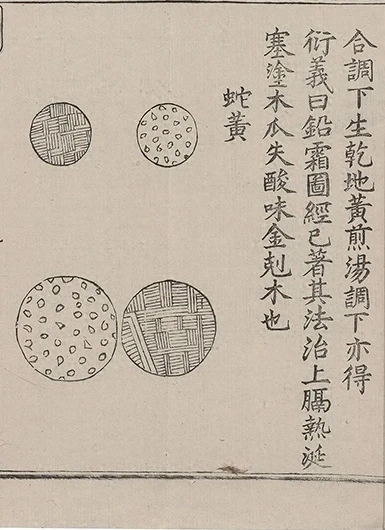 合調下生乾地黃煎湯調下亦得
衍義曰鉛霜圖經已著其法治上膈熱涎
塞塗木瓜失酸味金剋木也
蛇黃